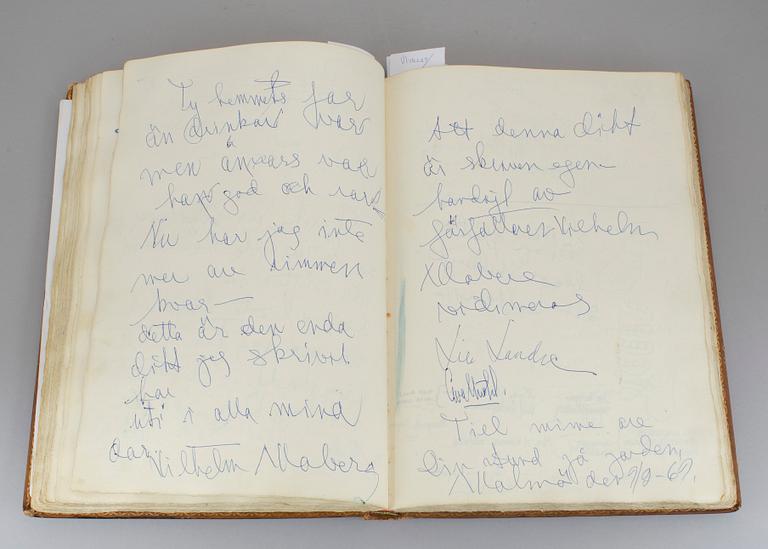 Ty hemmets far
än drinkar var
men annars var
han god och rar
Nu har jag inte
mer av rimmen
kvar —
detta är den enda
dikt jag skrivit
har
uti i alla mina
dar
Vilhelm Moberg
Att denna dikt
är skriven egen
handigt av
författaren Vilhelm
Moberg
vidimeras
Till minne av
en stund på jorden
Malmö den 9/9-67.